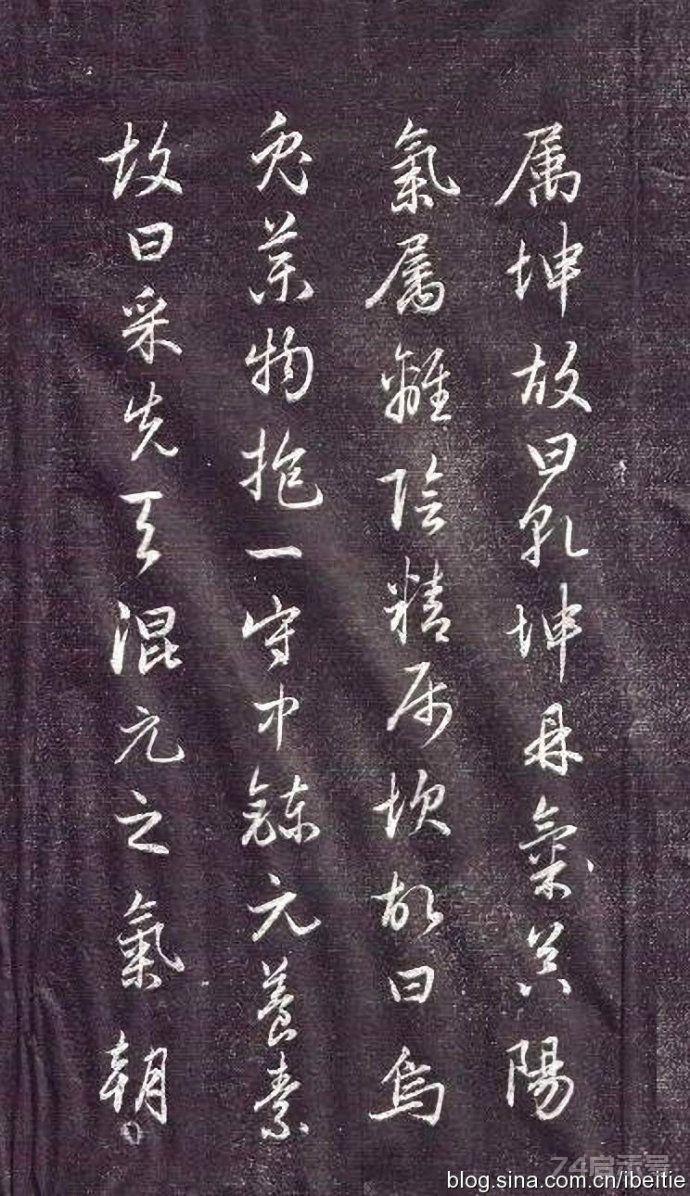 属坤故曰乾坤鼎氣其陽
氣属離陰精属坎故曰烏
兔藥物抱一守中鍊元養素
故曰采先天混元之氣朝
blog.sina.com.cn/ibeitie